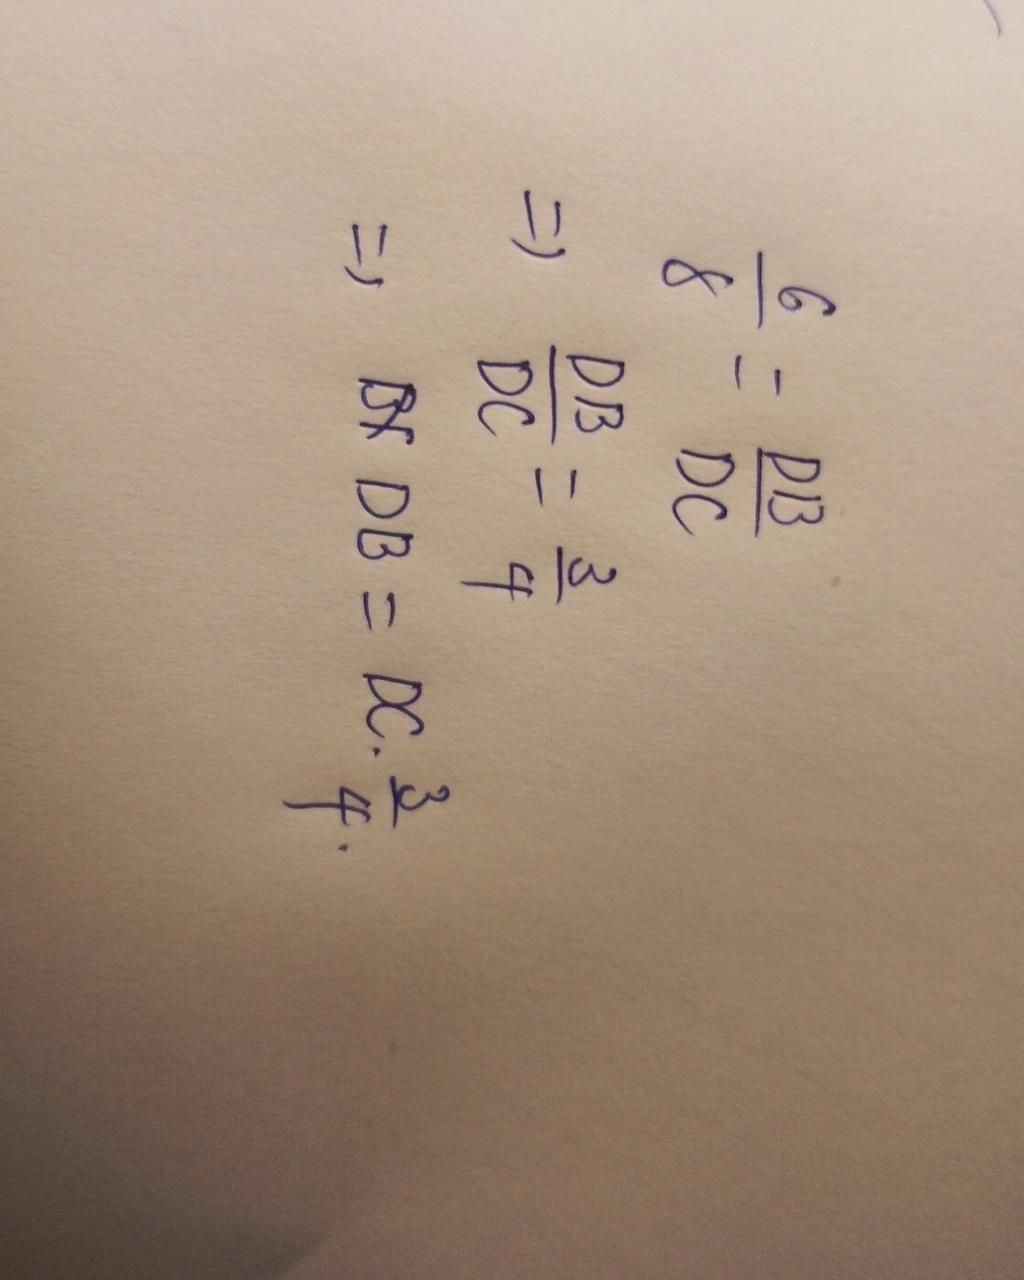 6/8 = DB/DC
=> DB/DC = 3/4
=> DB = DC . 3/4 .